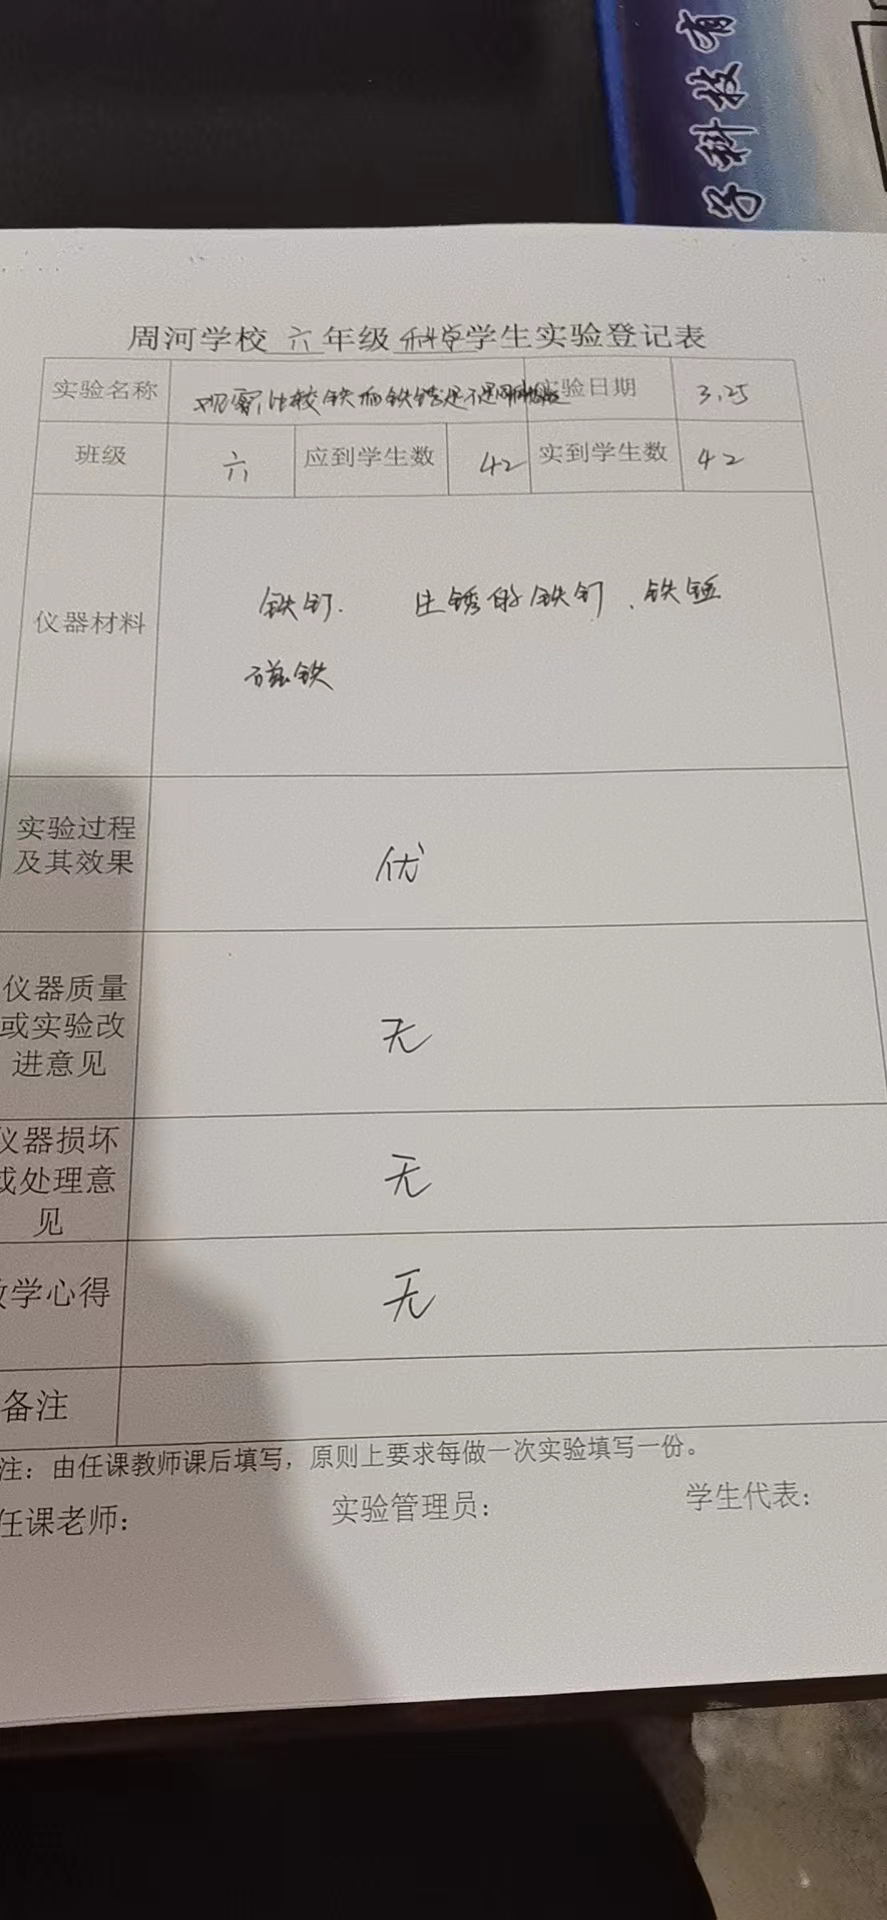 子科技有
周河学校 六 年级 科学 学生实验登记表
实验名称 观察比较铁和铁锈是不是同种物质 实验日期 3.25
班级 六 应到学生数 42 实到学生数 42
铁钉. 生锈的铁钉、铁锤
仪器材料
磁铁
实验过程
及其效果 优
仪器质量
或实验改 无
进意见
仪器损坏
或处理意 无
见
教学心得 无
备注
注：由任课教师课后填写，原则上要求每做一次实验填写一份。
任课老师： 实验管理员： 学生代表：